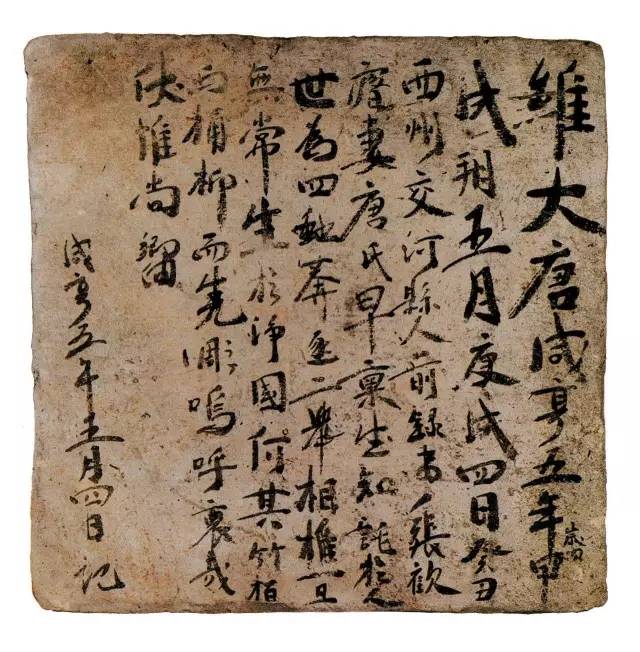 維大唐咸亨五年歲甲
戌朔五月庚戌四日癸丑
西州交河縣人前錄事張歡
妻唐氏早稟生知託於人
世為四虵奔逐二相摧一旦
無常生於淨國何其竹柏
而柳而先彫嗚呼哀哉
伏惟尚饗
咸亨五年五月四日記